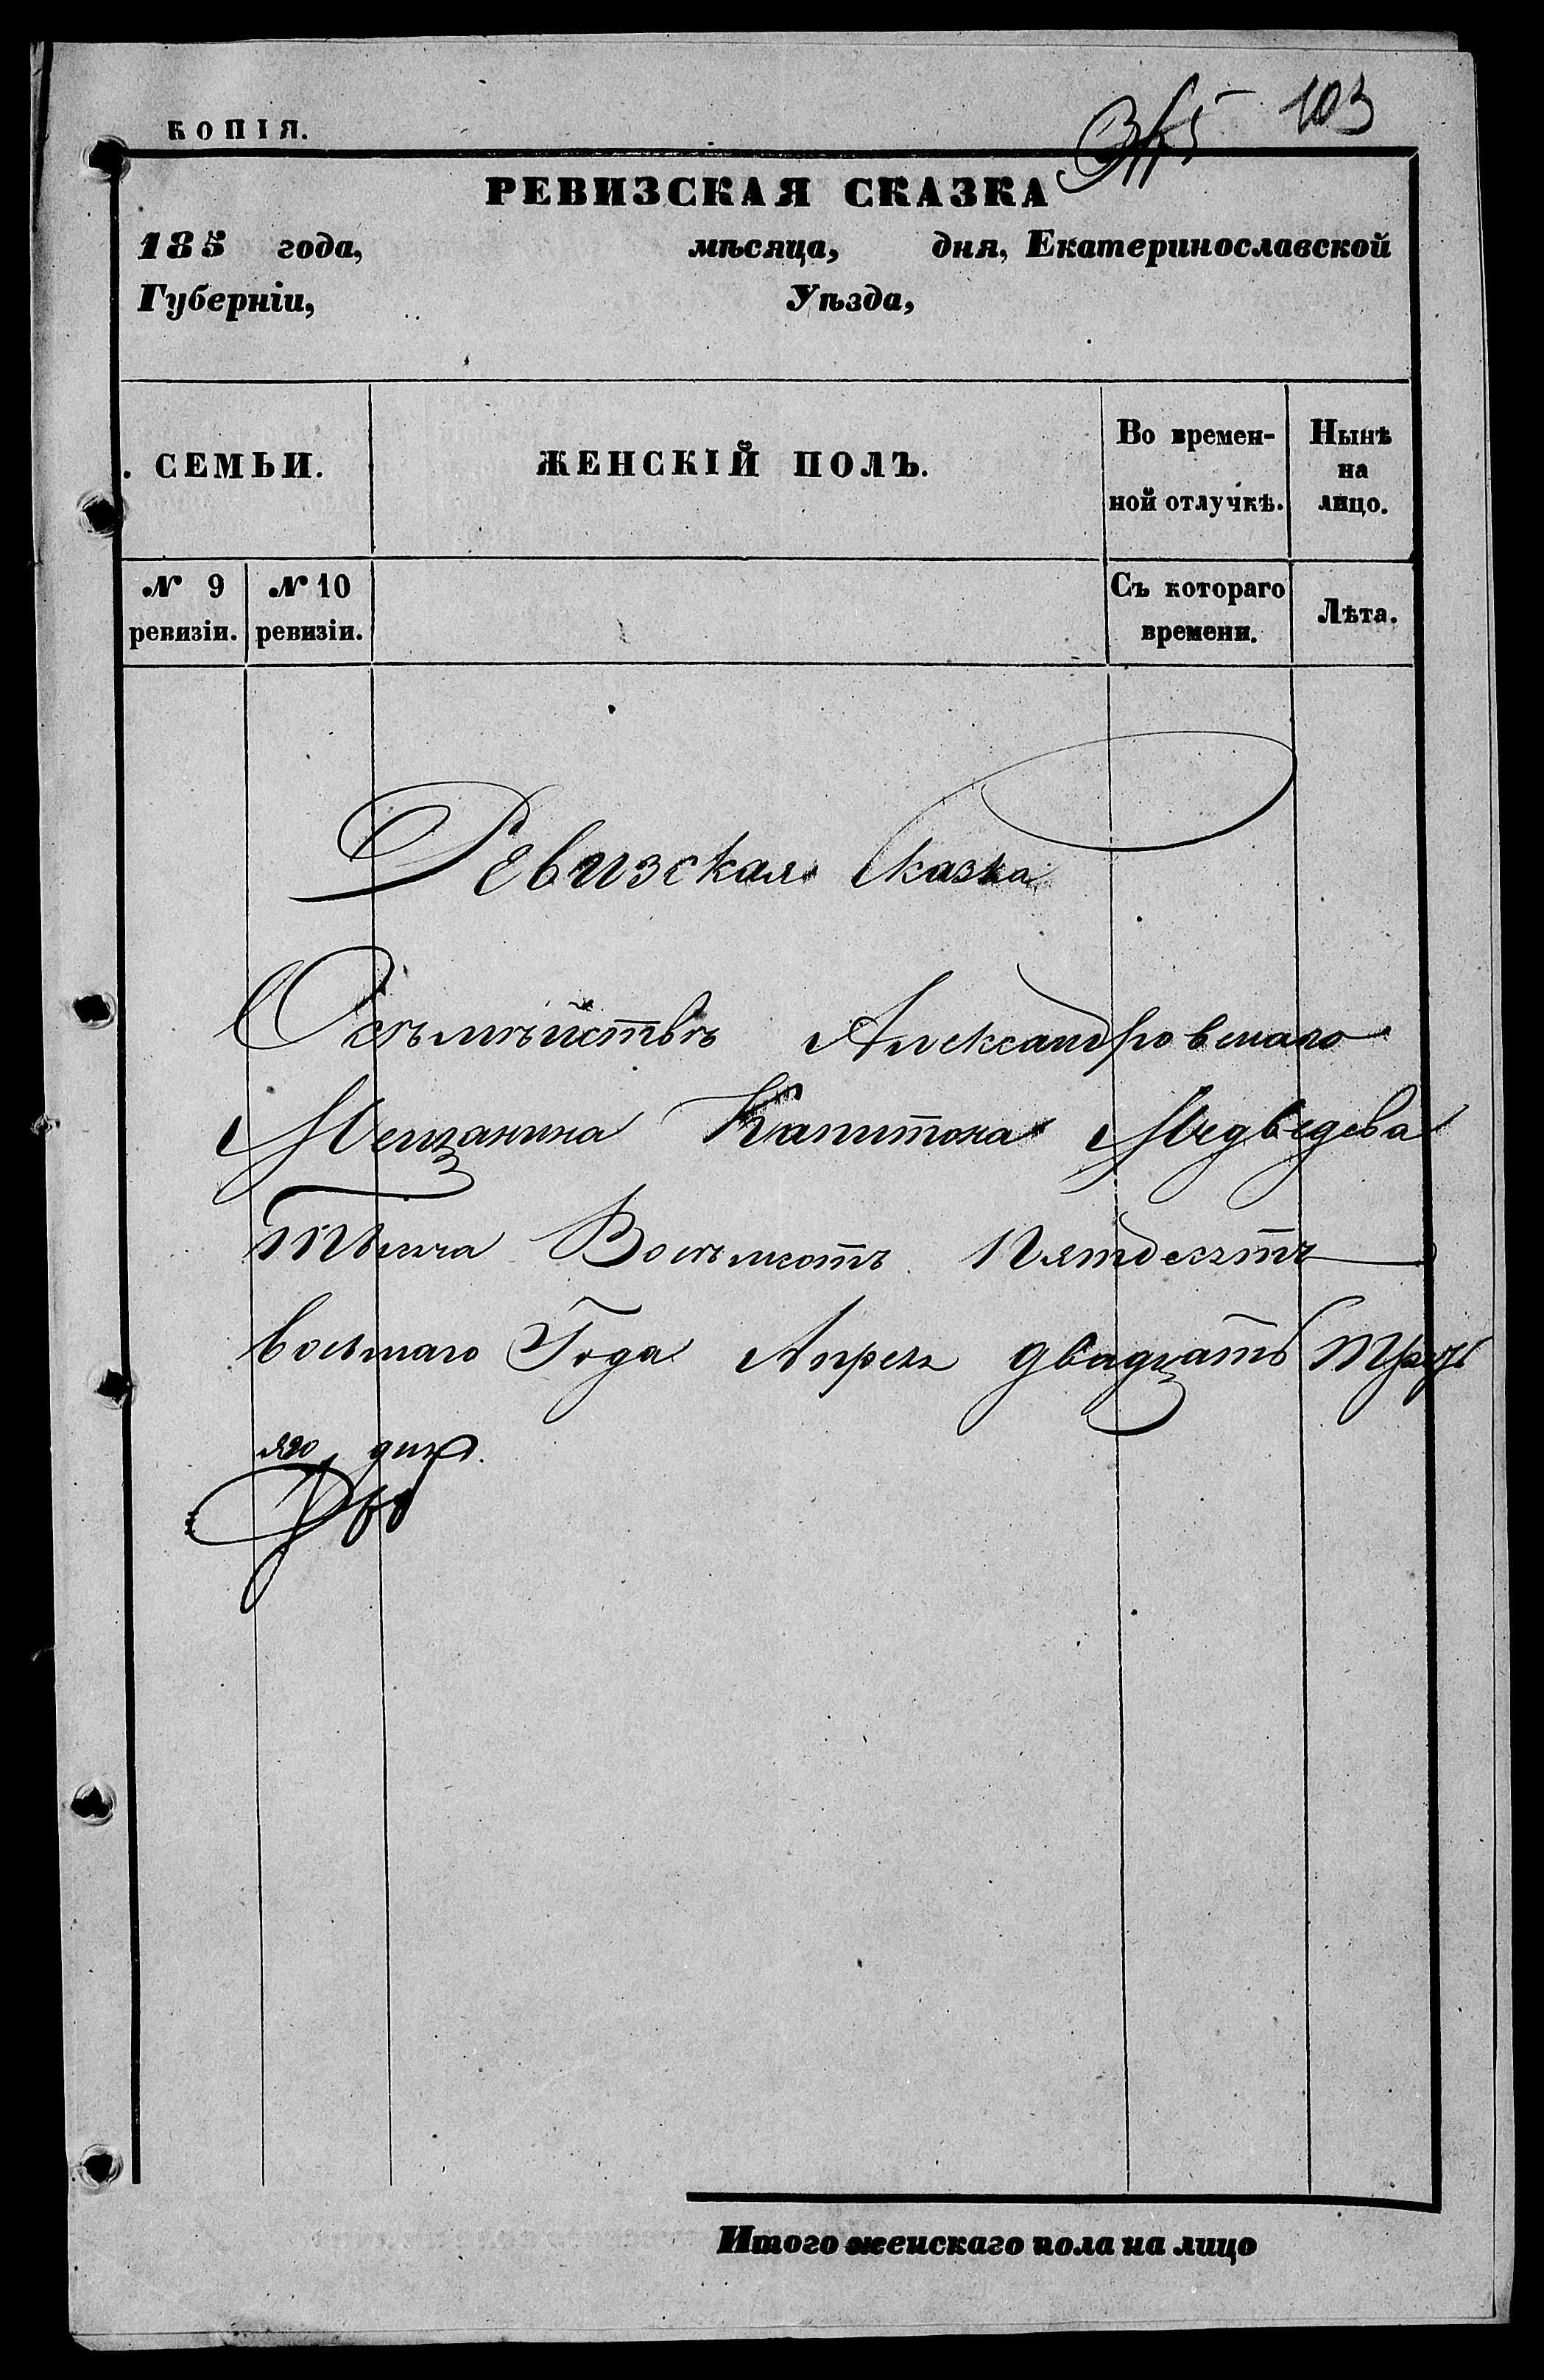 КОПІЯ.
103
РЕВИЗСКАЯ СКАЗКА
185 года, мѣсяца, дня, Екатеринославской
Губерніи, Уѣзда,
СЕМЬИ.
ЖЕНСКІЙ ПОЛЪ.
Во времен-
ной отлучкѣ.
Нынѣ
на
лицо.
№ 9
ревизіи.
№ 10
ревизіи.
Съ котораго
времени.
Лѣта.
Ревизская Сказка
О семѣйствѣ Александровскаго
Мещанина Капитона Медведева
Тысеча Восемсотъ Пятдесятъ
Восмаго Года Апреля двадцать треть
яго дня.
Итого женскаго пола на лицо